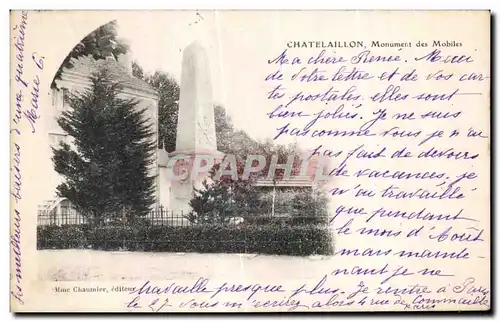 CHATELAILLON, Monument des Mobiles
Ma chère Renée. Merci
de votre lettre et de vos car
tes postales. elles sont
bien jolies. Je ne suis
pas comme vous je n'au
pas fait de devoirs
de vacances. Je
n'au travaillé
que pendant
le mois d'Août
mais mainte-
nant je ne
travaille presque plus. Je rentre à Paris
le 27 vous m'écrirez alors 4 rue de Commaille
Paris
les meilleurs baisers d'une quatrième
Marie
CARTPOSTAL
Mme Chaumier, éditeur